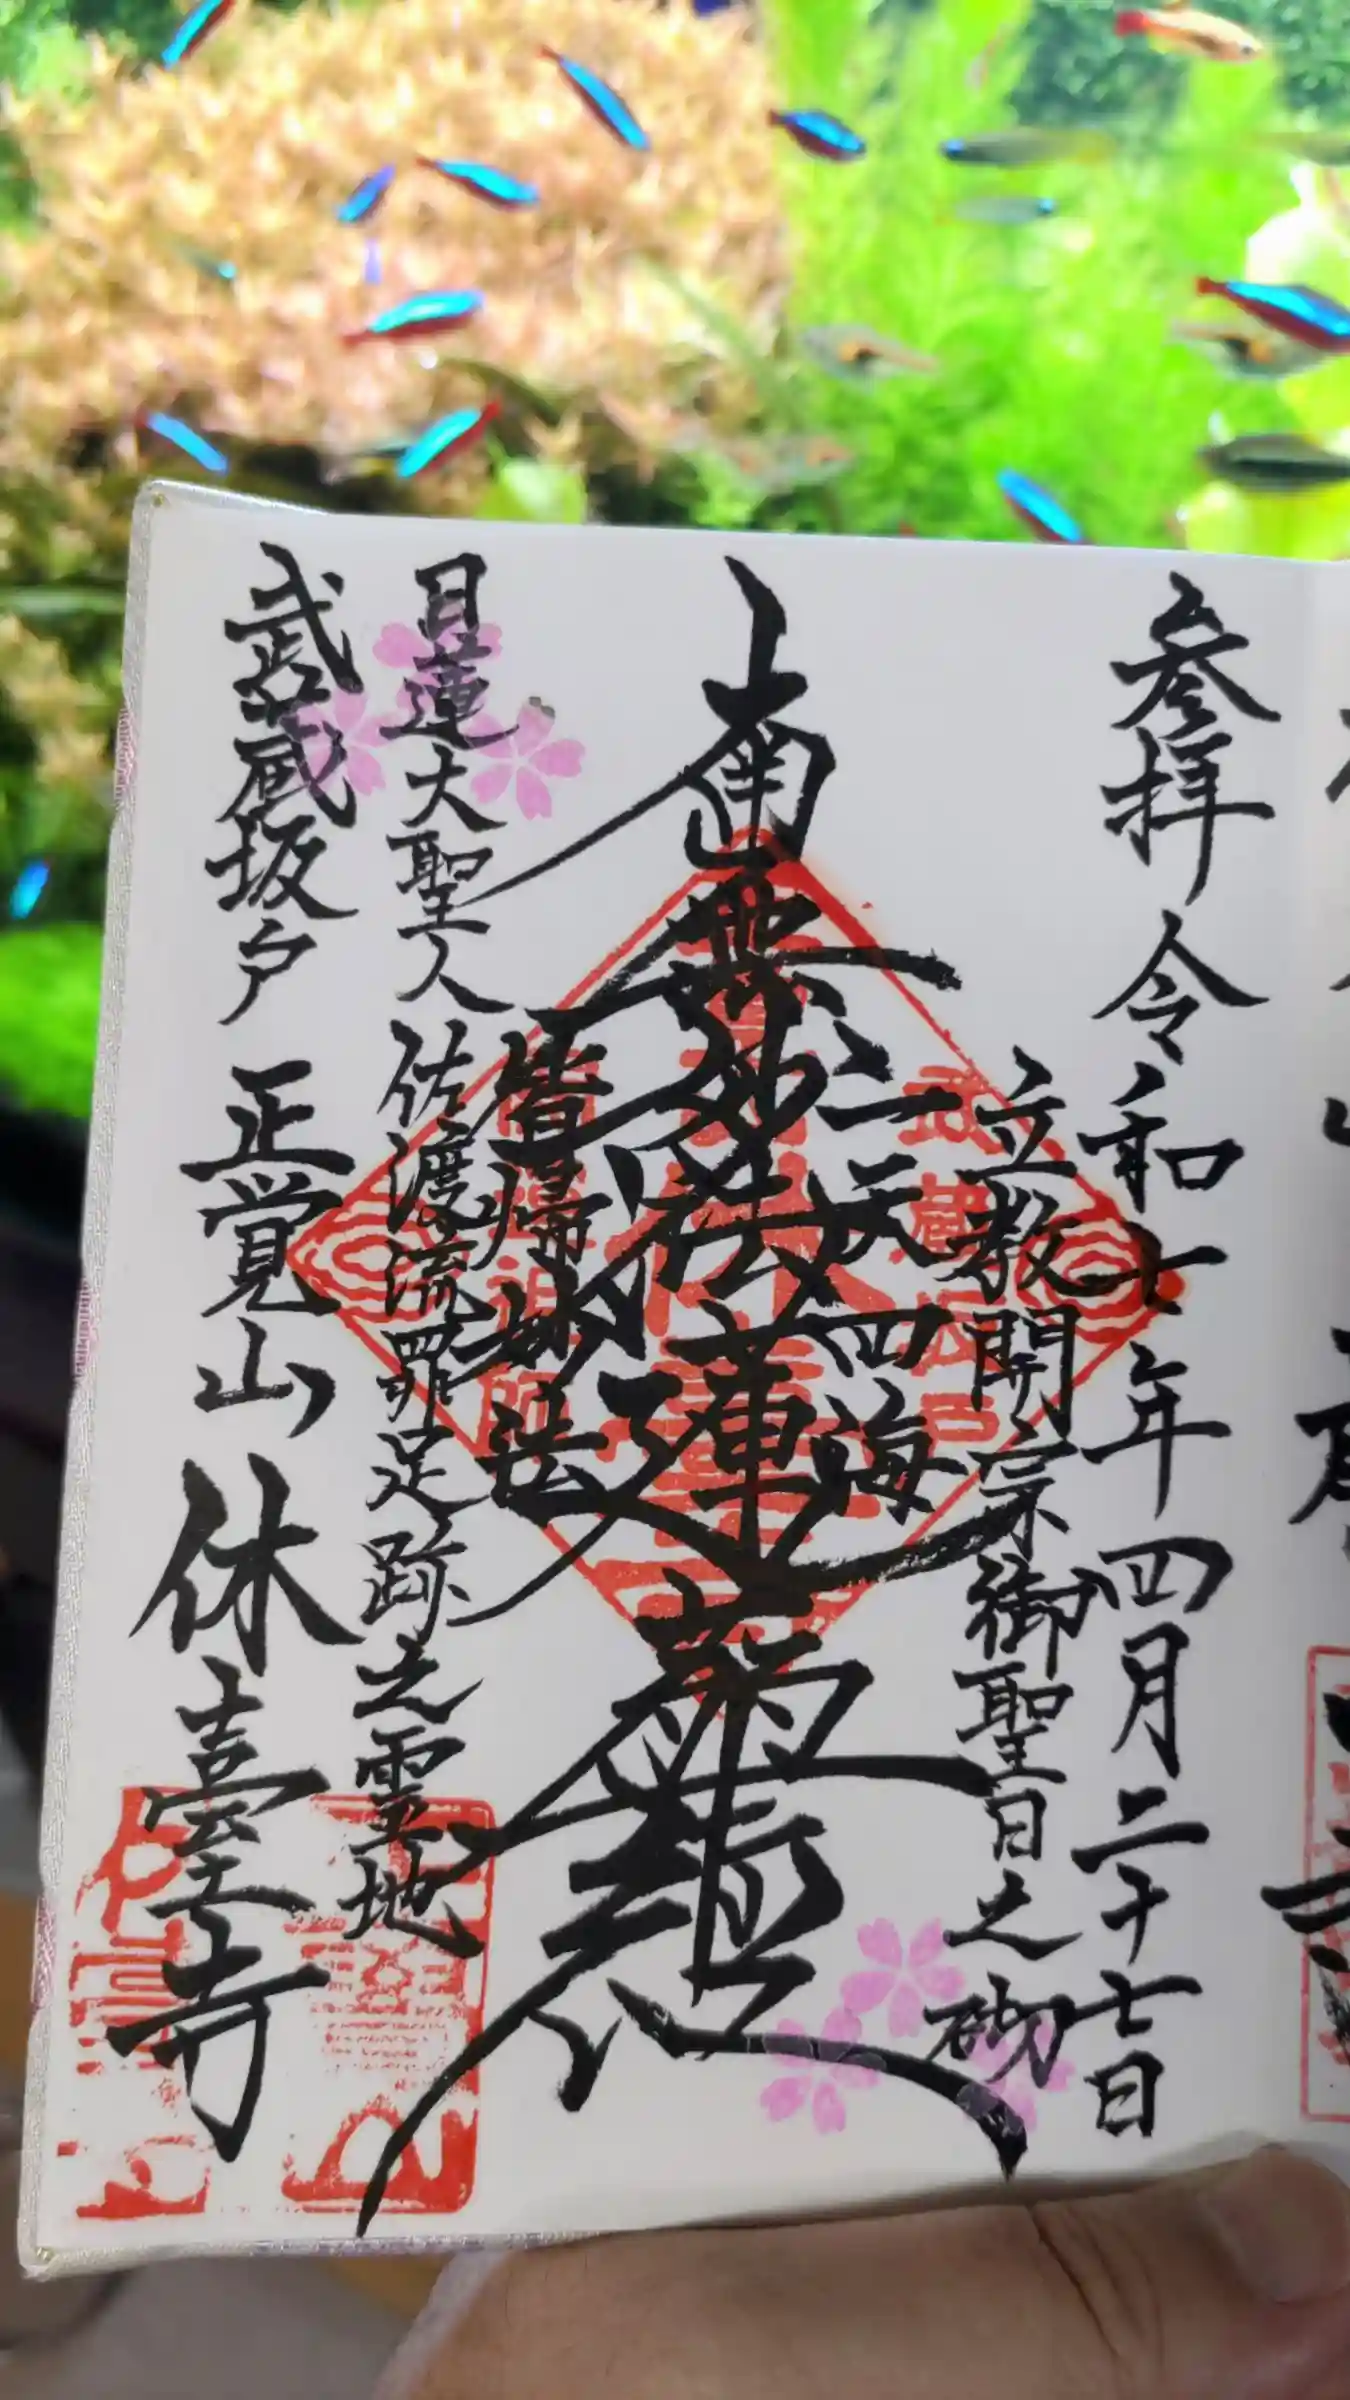 参拝 令和七年四月二十七日
立教開宗御聖日之砌
一天四海
南無妙法蓮華経
皆帰妙法
日蓮大聖人佐渡流罪足跡之霊地
武蔵坂戸 正覚山 休臺寺